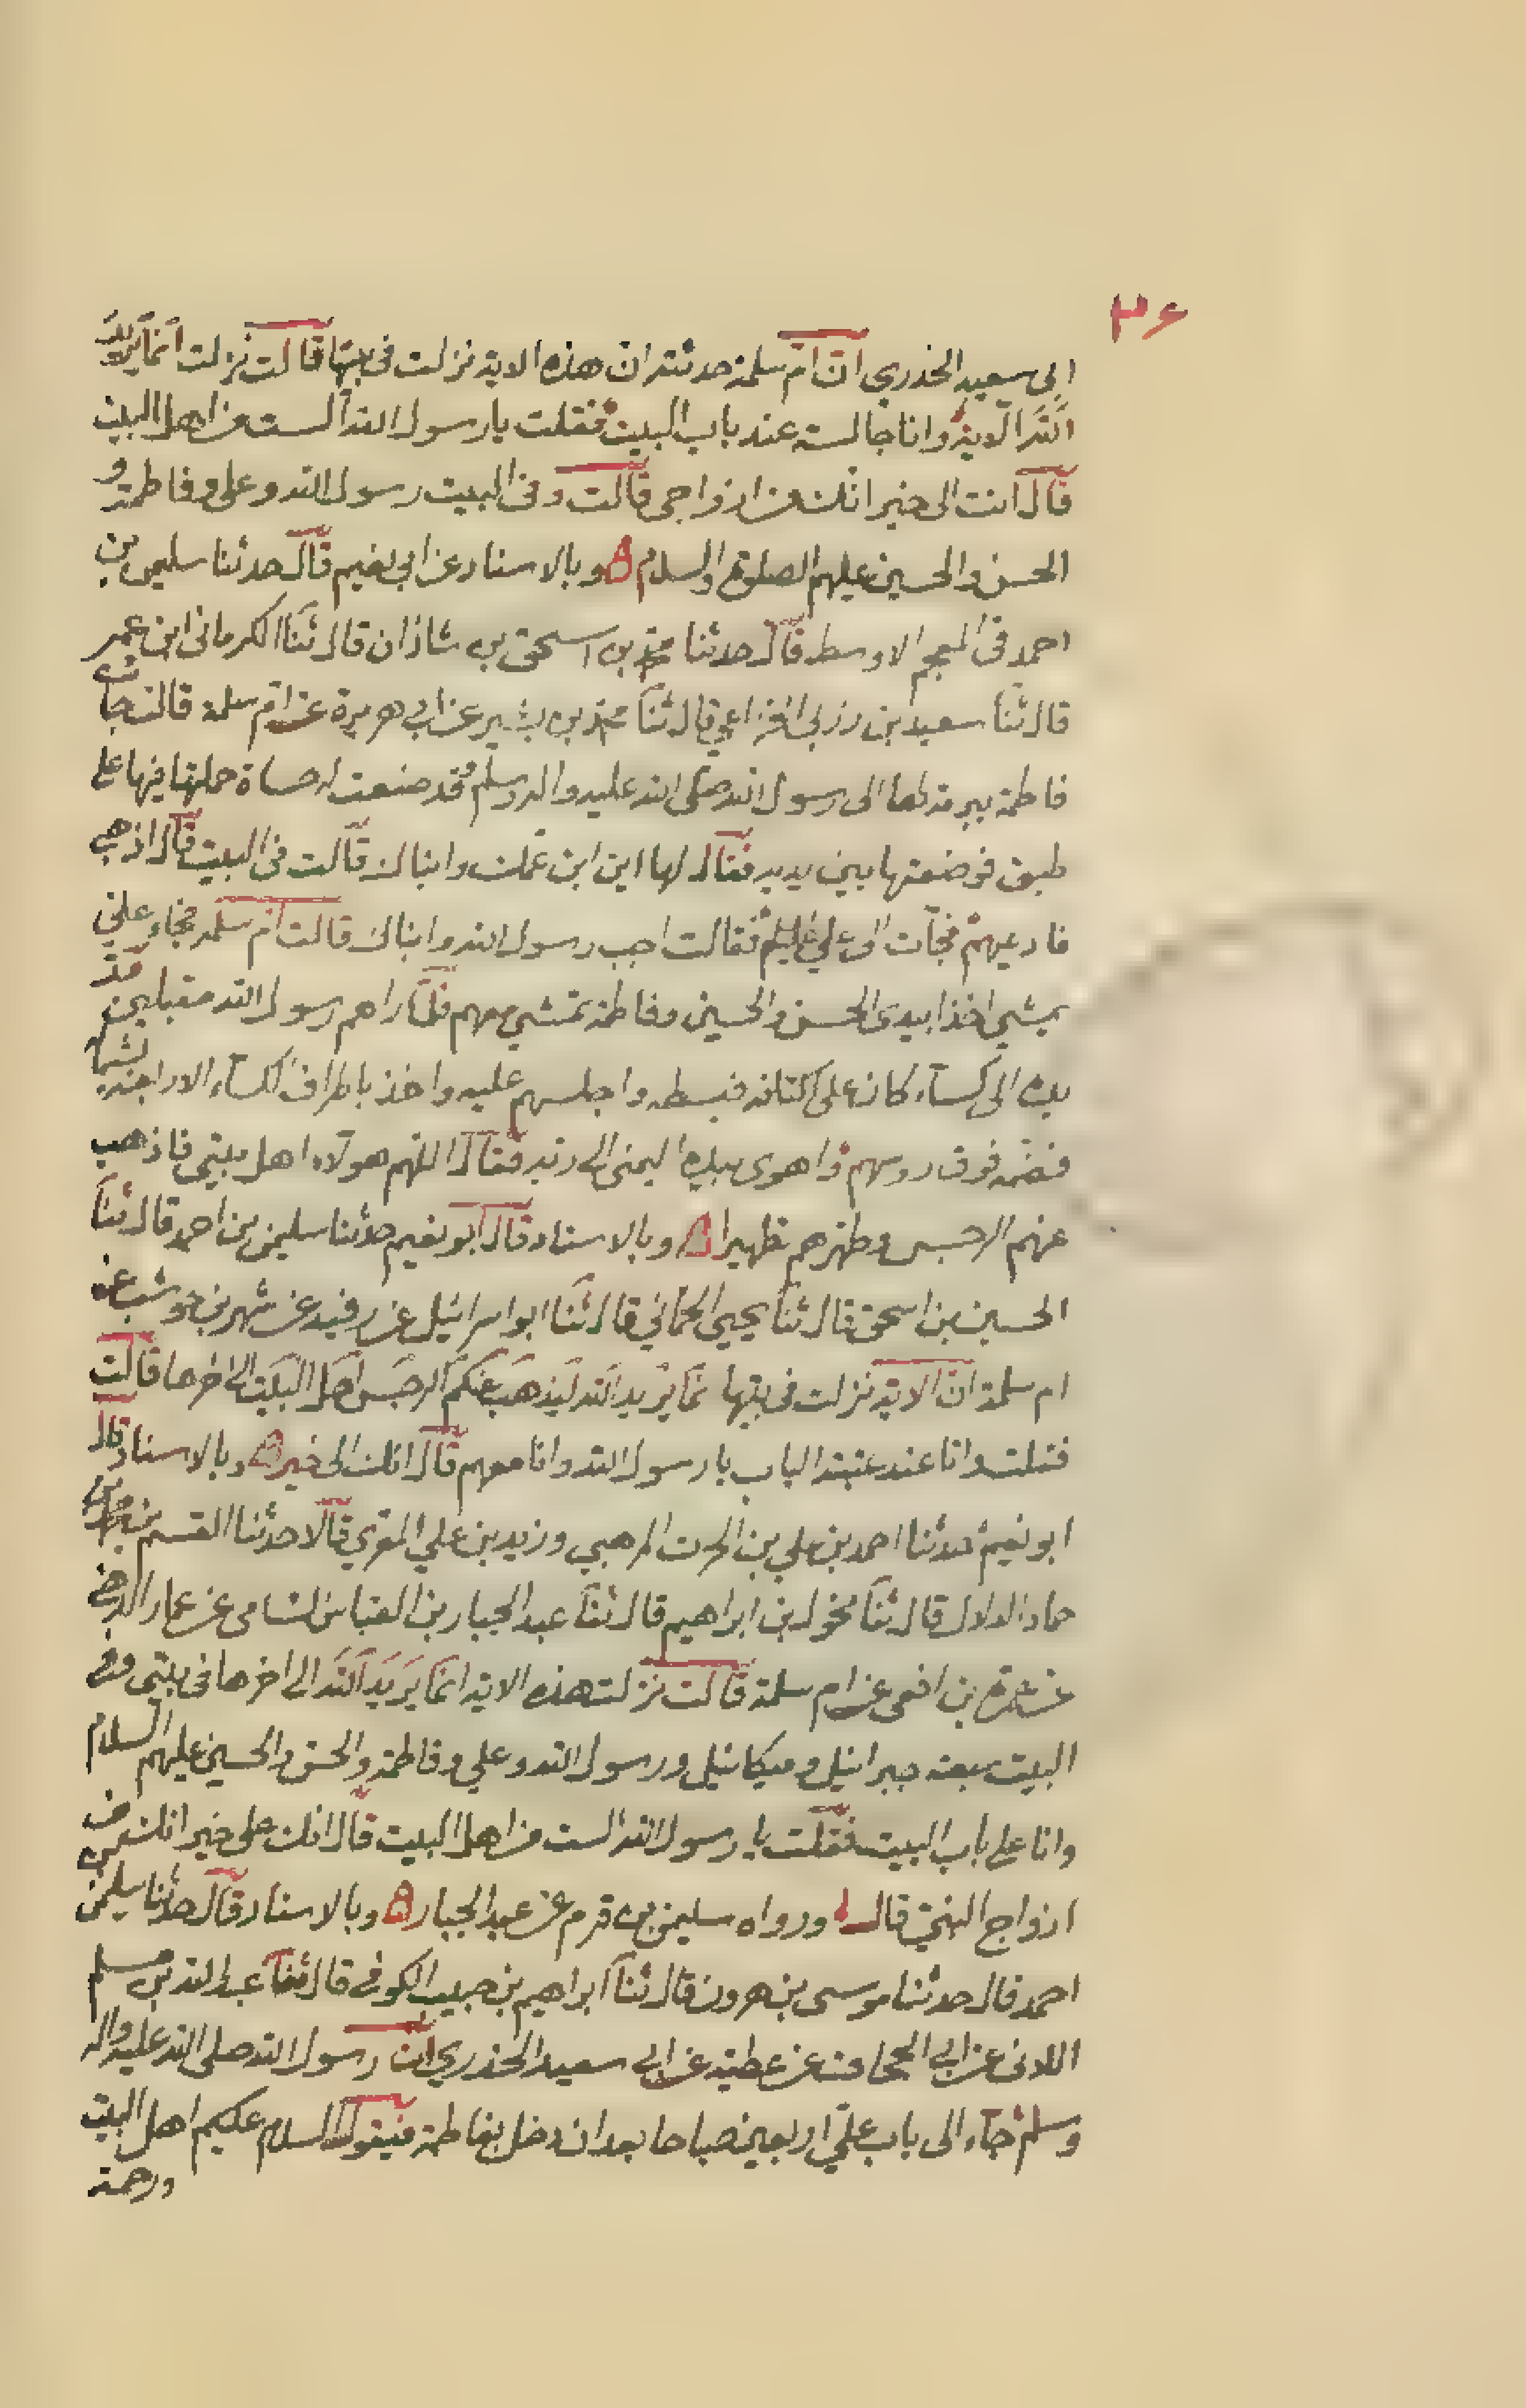 ٣٤
ابى سعيد الخدري ان ام سلمة حدثته ان هذه الاية نزلت فى بيتها قالت نزلت انما يريد
الله الاية وانا جالسة عند باب البيت فقلت يا رسول الله الست من اهل البيت
قال انت الى خير انك من ازواجى قالت وفى البيت رسول الله وعلى وفاطمة و
الحسن والحسين عليهم الصلوة والسلام وبالاسناد عن ابى نعيم قال حدثنا سليمن بن
احمد فى المعجم الاوسط قال حدثنا محمد بن اسحق بن شاذان قال ثنا الكرمانى ابن عمر
قال ثنا سعيد بن زربى الخزاعي قال ثنا محمد بن بشير عن ابى هريرة عن ام سلمة قالت جائت
فاطمة ببرمة لها الى رسول الله صلى الله عليه واله وسلم قد صنعت له حساة حملتها فيها على
طبق فوضعتها بين يديه فقال لها اين ابن عمك وابناك قالت فى البيت قال اذهبى
فادعيهم فجآت الى علي فقالت اجب رسول الله وابناك قالت ام سلمة فجاء علي
يمشي اخذا بيدى الحسن والحسين وفاطمة تمشي معهم فلما راهم رسول الله مقبلين مد
يده الى كسآء كان على فبسطه واجلسهم عليه واخذ باطراف الكسآء الاربعة بشماله
فضمه فوق روسهم واهوى بيده اليمنى الى ربه فقال اللهم هولاء اهل بيتى فاذهب
عنهم الرجس وطهرهم تطهيرا وبالاسناد قال ابو نعيم حدثنا سليمن بن احمد قال ثنا
الحسين بن اسحق قال ثنا يحيى الحماني قال ثنا ابو اسرائيل عن زبيد عن شهر بن حوشب عن
ام سلمة ان الاية نزلت فى بيتها نما يريد الله ليذهب عنكم الرجس اهل البيت الى اخرها قالت
فقلت وانا عند عتبة الباب يا رسول الله وانا معهم قال انك الى خير وبالاسناد قال
ابو نعيم حدثنا احمد بن علي بن الحرث المرهبي وزيد بن علي المقري قالا حدثنا القسم بن محمد بن
حماد الدلال قال ثنا مخول بن ابراهيم قال ثنا عبد الجبار بن العباس الشامى عن عمار الدهنى
عن عمرة بن افعى عن ام سلمة قالت نزلت هذه الاية انما يريد الله الى اخرها فى بيتى وفى
البيت سبعة جبرائيل وميكائيل ورسول الله وعلي وفاطمة والحسن والحسين عليهم السلام
وانا على باب البيت فقلت يا رسول الله الست من اهل البيت قال انك على خير انك من
ازواج النبي قال ورواه سليمن بن قرم عن عبد الجبار وبالاسناد قال حدثنا سليمن بن
احمد قال حدثنا موسى بن هرون قال ثنا ابراهيم بن حبيب الكوفى قال ثنا عبد الله بن مسلم
اللانى عن ابى الجحاف عن عطية عن ابى سعيد الخدري ان رسول الله صلى الله عليه واله
وسلم جآء الى باب علي اربعين صباحا بعد ان دخل بفاطمة فيقول السلام عليكم اهل البيت
ورحمة